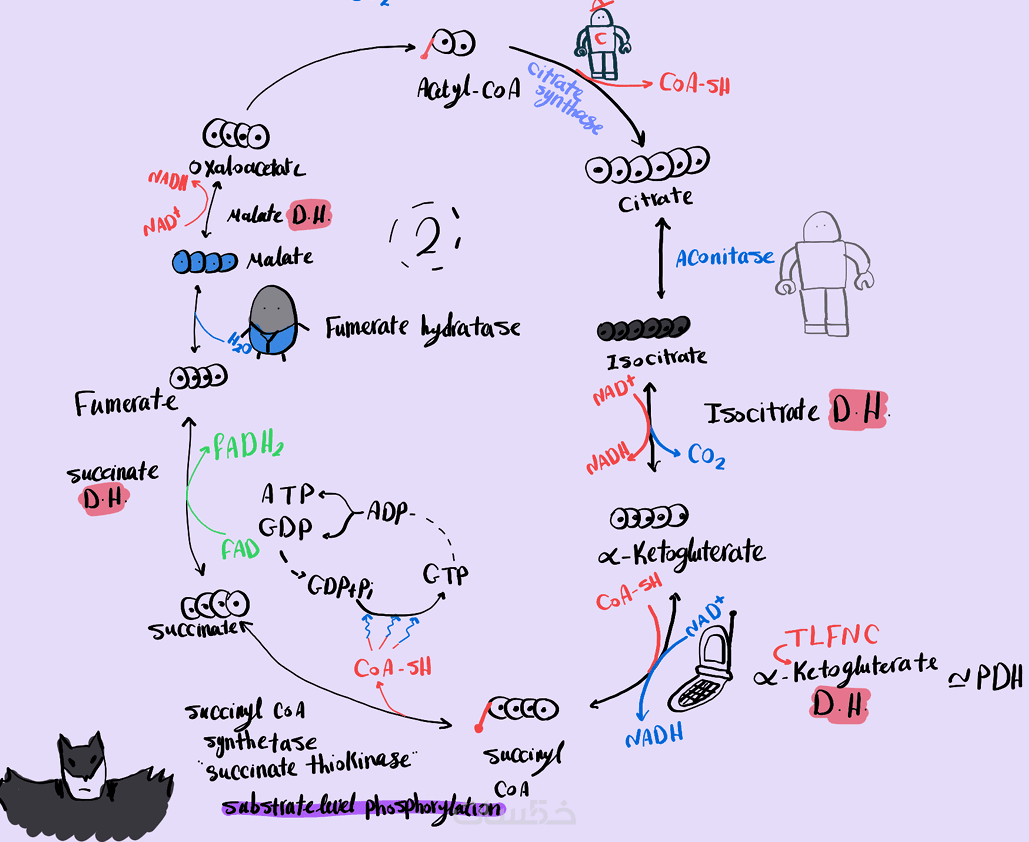 2
C
CoA-SH
Acetyl-CoA
citrate
synthase
Oxaloacetate
NADH
NAD+
Malate D.H.
2
Citrate
Aconitase
Malate
H2O
Fumerate hydratase
Isocitrate
Fumerate
NAD+
Isocitrate D.H.
NADH
CO2
FADH2
succinate
D.H.
ATP
ADP
GDP
FAD
α-Ketogluterate
GDP+Pi
GTP
CoA-SH
NAD+
Succinate
TLFNC
α-Ketogluterate
D.H.
≃PDH
CoA-SH
NADH
succinyl CoA
synthetase
"succinate thiokinase"
succinyl
CoA
substrate level phosphorylation